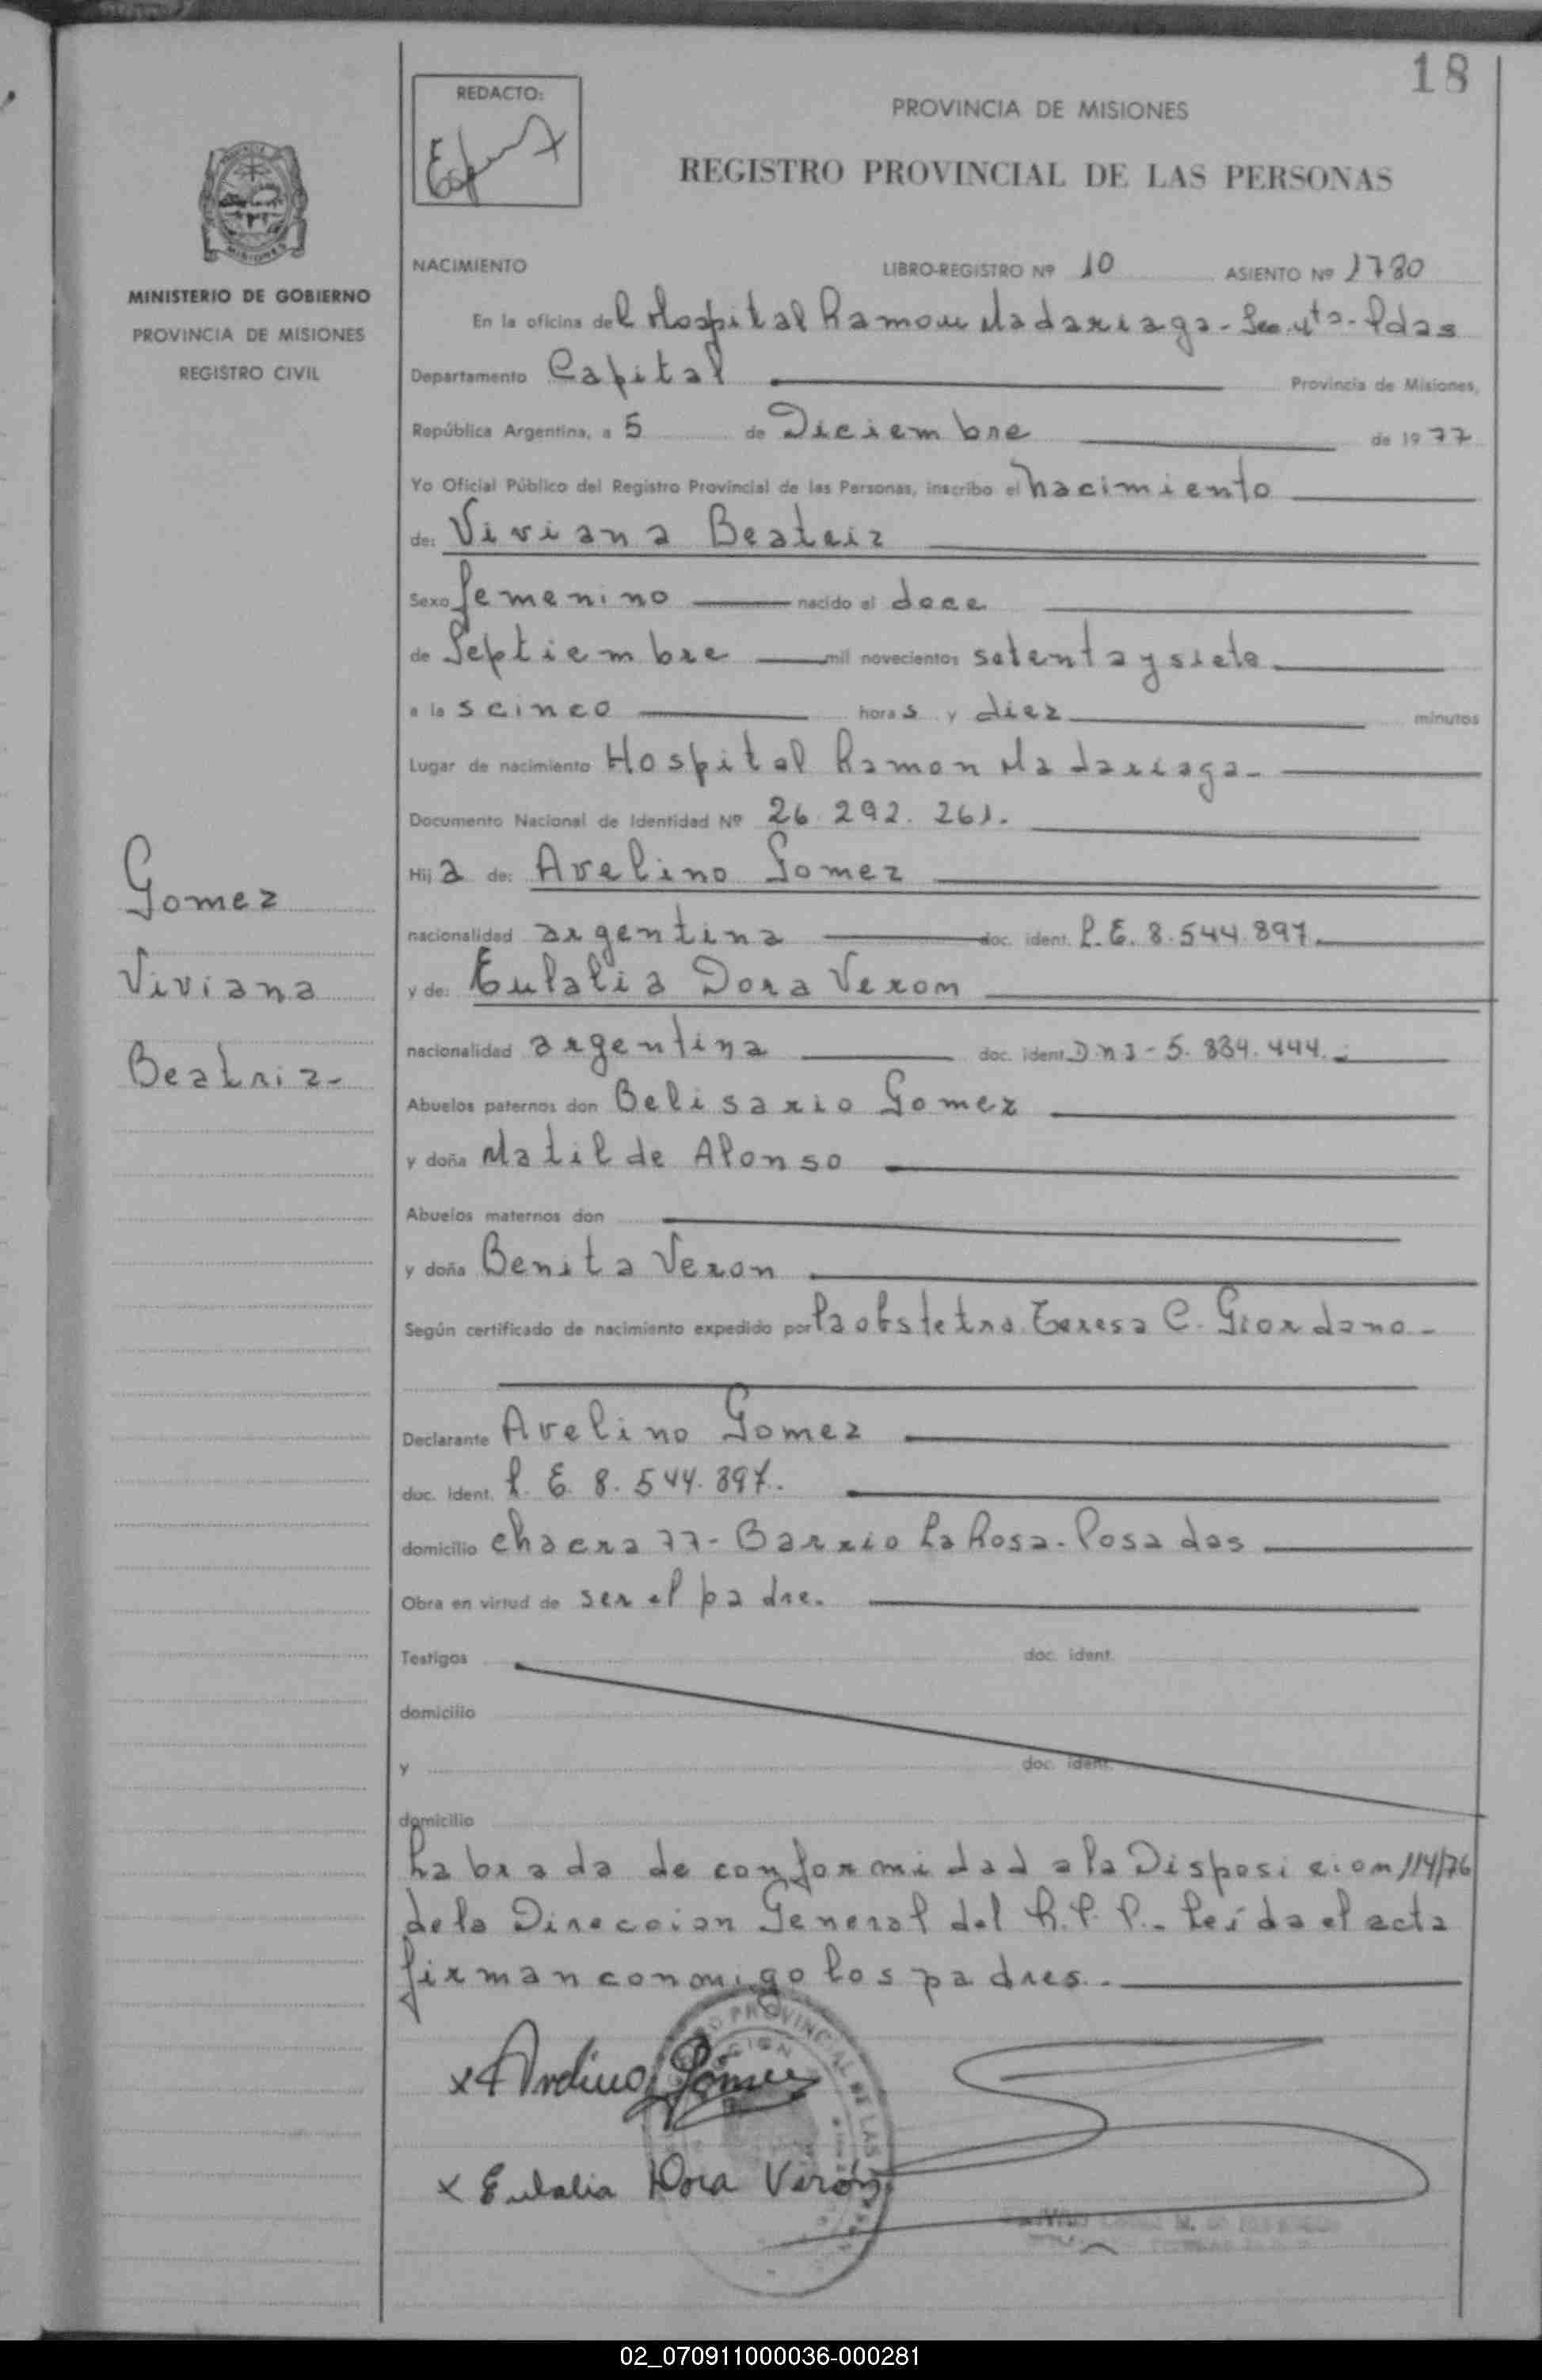 18
REDACTO:
PROVINCIA DE MISIONES
REGISTRO PROVINCIAL DE LAS PERSONAS
MISIONES
MINISTERIO DE GOBIERNO
PROVINCIA DE MISIONES
REGISTRO CIVIL
NACIMIENTO LIBRO-REGISTRO Nº 10 ASIENTO Nº 1780
En la oficina del Hospital Ramon Madariaga - Sec. 4ta - Pdas
Departamento Capital Provincia de Misiones,
República Argentina, a 5 de Diciembre de 1977
Yo Oficial Público del Registro Provincial de las Personas, inscribo el nacimiento
de: Viviana Beatriz
Sexo femenino nacido el doce
de Septiembre mil novecientos setenta y siete
a las cinco horas y diez minutos
Lugar de nacimiento Hospital Ramon Madariaga-
Documento Nacional de Identidad Nº 26.292.261.
Hija de: Avelino Gomez
nacionalidad argentina doc. ident. L.E. 8.544.897.
y de: Eulalia Dora Veron
nacionalidad argentina doc. ident. DNI - 5.834.444.-
Abuelos paternos don Belisario Gomez
y doña Matilde Alonso
Abuelos maternos don
y doña Benita Veron
Según certificado de nacimiento expedido por la obstetra. Teresa C. Giordano-
Declarante Avelino Gomez
doc. ident. L.E. 8.544.897.
domicilio chacra 77 - Barrio La Rosa - Posadas
Obra en virtud de ser el padre.
Testigos doc. ident.
domicilio
y doc. ident.
domicilio
Labrada de conformidad a la Disposicion 114/76
de la Direccion General del R.P.P.- Leída el acta
firman conmigo los padres.-
x Avelino Gómez
x Eulalia Dora Verón
Gomez
Viviana
Beatriz-
02_070911000036-000281